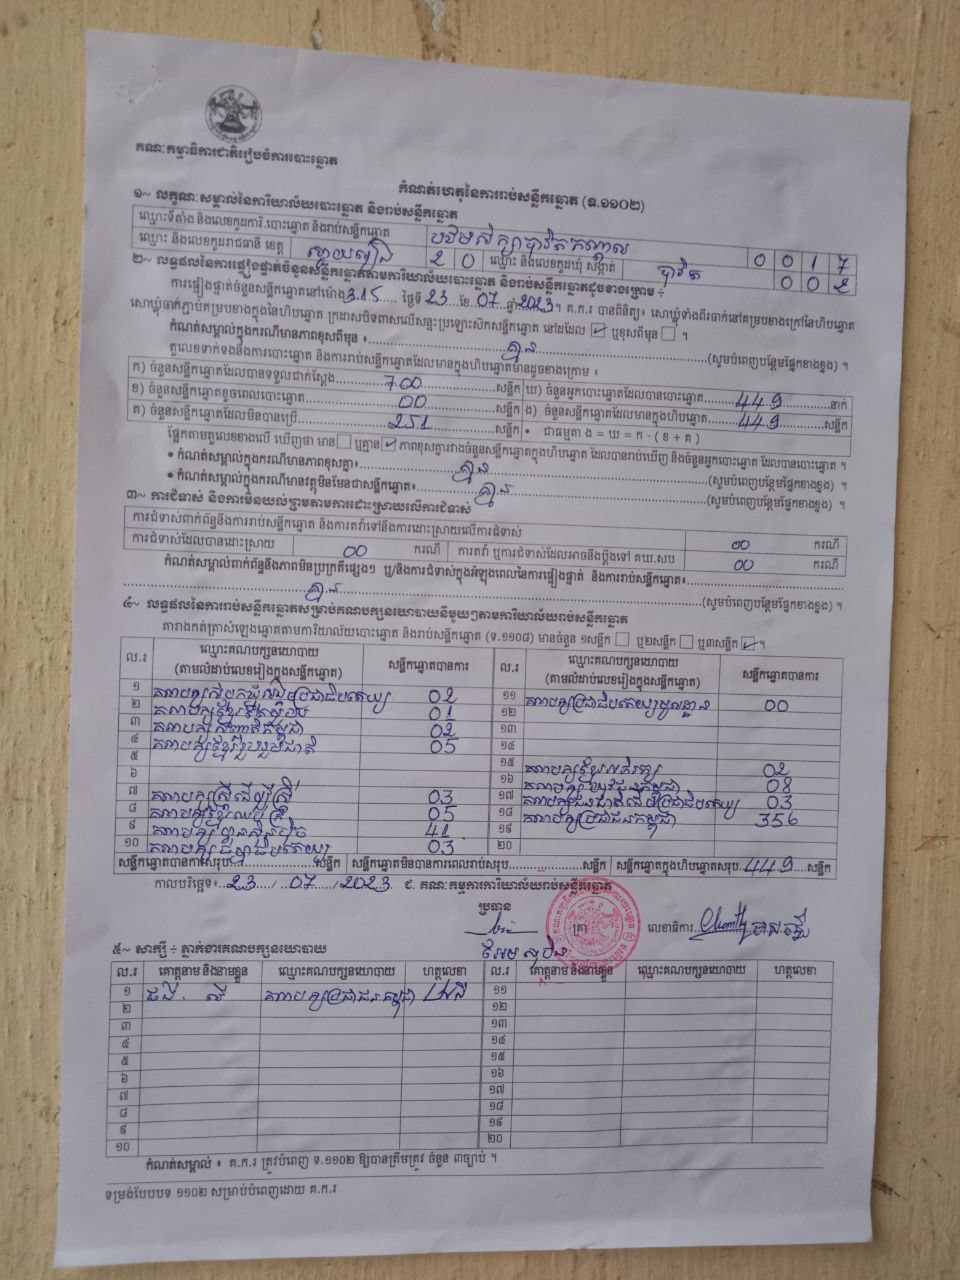 គណៈកម្មាធិការជាតិរៀបចំការបោះឆ្នោត
កំណត់ហេតុនៃការរាប់សន្លឹកឆ្នោត (ទ.១១០២)
១~ លក្ខណៈសម្គាល់នៃការិយាល័យបោះឆ្នោត និងរាប់សន្លឹកឆ្នោត
ឈ្មោះទីតាំង និងលេខកូដការិ.បោះឆ្នោត និងរាប់សន្លឹកឆ្នោត 0 0 1 7
ឈ្មោះ និងលេខកូដរាជធានី ខេត្ត ស្វាយរៀង 2 0 ឈ្មោះ និងលេខកូដឃុំ សង្កាត់ បាវិត 0 0 2
២~ លទ្ធផលនៃការផ្ទៀងផ្ទាត់ចំនួនសន្លឹកឆ្នោតតាមការិយាល័យបោះឆ្នោត និងរាប់សន្លឹកឆ្នោតដូចខាងក្រោម ÷
ការផ្ទៀងផ្ទាត់ចំនួនសន្លឹកឆ្នោតនៅម៉ោង 3.15 ថ្ងៃទី 23 ខែ 07 ឆ្នាំ 2023។ គ.ក.រ បានពិនិត្យ៖ សោឃ្លុំទាំងពីរចាក់នៅគម្របខាងក្រៅនៃហិបឆ្នោត
សោឃ្លុំចាក់ភ្ជាប់គម្របខាងក្នុងនៃហិបឆ្នោត ក្រដាសបិទពាសលើសន្ទះប្រឡោះសឹកសន្លឹកឆ្នោត នៅដដែល ✓ ឬខុសពីមុន ។
កំណត់សម្គាល់ក្នុងករណីមានភាពខុសពីមុន ៖ គ្មាន (សូមបំពេញបន្ថែមផ្នែកខាងខ្នង) ។
តួលេខទាក់ទងនឹងការបោះឆ្នោត និងការរាប់សន្លឹកឆ្នោតដែលមានក្នុងហិបឆ្នោតមានដូចខាងក្រោម ៖
ក) ចំនួនសន្លឹកឆ្នោតដែលបានទទួលជាក់ស្តែង 700 សន្លឹក ឃ) ចំនួនអ្នកបោះឆ្នោតដែលបានបោះឆ្នោត 449 នាក់
ខ) ចំនួនសន្លឹកឆ្នោតខូចពេលបោះឆ្នោត 00 សន្លឹក ង) ចំនួនសន្លឹកឆ្នោតដែលមានក្នុងហិបឆ្នោត 449 សន្លឹក
គ) ចំនួនសន្លឹកឆ្នោតដែលមិនបានប្រើ 251 សន្លឹក • ជាធម្មតា ង = ឃ = ក - ( ខ + គ )
ផ្អែកតាមតួលេខខាងលើ ឃើញថា មាន ឬគ្មាន ✓ ភាពខុសគ្នារវាងចំនួនសន្លឹកឆ្នោតក្នុងហិបឆ្នោត ដែលបានរាប់ឃើញ និងចំនួនអ្នកបោះឆ្នោត ដែលបានបោះឆ្នោត ។
• កំណត់សម្គាល់ក្នុងករណីមានភាពខុសគ្នា៖ គ្មាន (សូមបំពេញបន្ថែមផ្នែកខាងខ្នង) ។
• កំណត់សម្គាល់ក្នុងករណីមានវត្ថុមិនមែនជាសន្លឹកឆ្នោត៖ គ្មាន (សូមបំពេញបន្ថែមផ្នែកខាងខ្នង) ។
៣~ ការជំទាស់ និងការមិនយល់ព្រមតាមការដោះស្រាយលើការជំទាស់
ការជំទាស់ពាក់ព័ន្ធនឹងការរាប់សន្លឹកឆ្នោត និងការតវ៉ាទៅនឹងការដោះស្រាយលើការជំទាស់ 00 ករណី
ការជំទាស់ដែលបានដោះស្រាយ 00 ករណី ការតវ៉ា ឬការជំទាស់ដែលអាចនឹងប្តឹងទៅ គឃ.សប 00 ករណី
កំណត់សម្គាល់ពាក់ព័ន្ធនឹងភាពមិនប្រក្រតីផ្សេងៗ ឬ/និងការជំទាស់ក្នុងអំឡុងពេលនៃការផ្ទៀងផ្ទាត់ និងការរាប់សន្លឹកឆ្នោត៖
គ្មាន (សូមបំពេញបន្ថែមផ្នែកខាងខ្នង) ។
៤~ លទ្ធផលនៃការរាប់សន្លឹកឆ្នោតសម្រាប់គណបក្សនយោបាយនីមួយៗតាមការិយាល័យរាប់សន្លឹកឆ្នោត
តារាងកត់ត្រាសំឡេងឆ្នោតតាមការិយាល័យបោះឆ្នោត និងរាប់សន្លឹកឆ្នោត (ទ.១១០៨) មានចំនួន ១សន្លឹក ឬ២សន្លឹក ឬ៣សន្លឹក ✓ ។
ល.រ ឈ្មោះគណបក្សនយោបាយ (តាមលំដាប់លេខរៀងក្នុងសន្លឹកឆ្នោត) សន្លឹកឆ្នោតបានការ ល.រ ឈ្មោះគណបក្សនយោបាយ (តាមលំដាប់លេខរៀងក្នុងសន្លឹកឆ្នោត) សន្លឹកឆ្នោតបានការ
១ គណបក្សសំបុកឃ្មុំសង្គមប្រជាធិបតេយ្យ 02 ១១ គណបក្សប្រជាធិបតេយ្យមូលដ្ឋាន 00
២ 01 ១២
៣ 02 ១៣
៤ គណបក្សខ្មែររួបរួមជាតិ 05 ១៤
៥ ១៥ គណបក្សខ្មែរអភិរក្ស 02
៦ ១៦ គណបក្សយុវជនកម្ពុជា 08
៧ គណបក្សស្រ្តីដើម្បីស្រ្តី 03 ១៧ គណបក្សជនជាតិដើមប្រជាធិបតេយ្យ 03
៨ 05 ១៨ គណបក្សប្រជាជនកម្ពុជា 356
៩ គណបក្សហ្វ៊ុនស៊ិនប៉ិច 41 ១៩
១០ គណបក្សធម្មាធិបតេយ្យ 03 ២០
សន្លឹកឆ្នោតបានការសរុប សន្លឹក សន្លឹកឆ្នោតមិនបានការពេលរាប់សរុប សន្លឹក សន្លឹកឆ្នោតក្នុងហិបឆ្នោតសរុប 449 សន្លឹក
កាលបរិច្ឆេទ៖ 23 / 07 / 2023 ជ. គណៈកម្មការការិយាល័យរាប់សន្លឹកឆ្នោត
ប្រធាន ត្រា លេខាធិការ
៥~ សាក្សី ÷ ភ្នាក់ងារគណបក្សនយោបាយ
ល.រ គោត្តនាម និងនាមខ្លួន ឈ្មោះគណបក្សនយោបាយ ហត្ថលេខា ល.រ គោត្តនាម និងនាមខ្លួន ឈ្មោះគណបក្សនយោបាយ ហត្ថលេខា
១ គណបក្សប្រជាជនកម្ពុជា ១១
២ ១២
៣ ១៣
៤ ១៤
៥ ១៥
៦ ១៦
៧ ១៧
៨ ១៨
៩ ១៩
១០ ២០
កំណត់សម្គាល់ ៖ គ.ក.រ ត្រូវបំពេញ ទ.១១០២ ឱ្យបានត្រឹមត្រូវ ចំនួន ៣ច្បាប់ ។
ទម្រង់បែបបទ ១១០២ សម្រាប់បំពេញដោយ គ.ក.រ